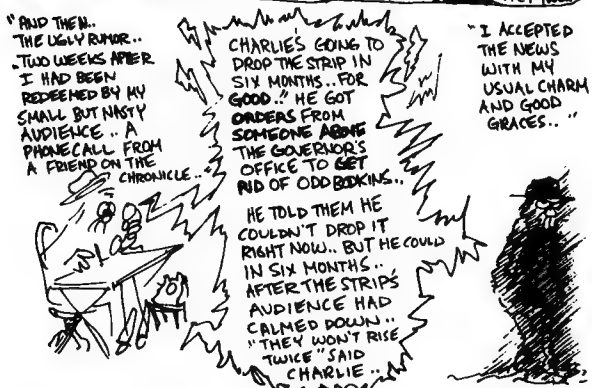 "AND THEN..
THE UGLY RUMOR..
.TWO WEEKS AFTER
I HAD BEEN
REDEEMED BY MY
SMALL BUT NASTY
AUDIENCE .. A
PHONE CALL FROM
A FRIEND ON THE
CHRONICLE.."
CHARLIE'S GOING TO
DROP THE STRIP IN
SIX MONTHS.. FOR
GOOD.." HE GOT
ORDERS FROM
SOMEONE ABOVE
THE GOVERNOR'S
OFFICE TO GET
RID OF ODD BODKINS..
HE TOLD THEM HE
COULDN'T DROP IT
RIGHT NOW.. BUT HE COULD
IN SIX MONTHS..
AFTER THE STRIP'S
AUDIENCE HAD
CALMED DOWN..
"THEY WON'T RISE
TWICE" SAID
CHARLIE ..
"I ACCEPTED
THE NEWS
WITH MY
USUAL CHARM
AND GOOD
GRACES.."